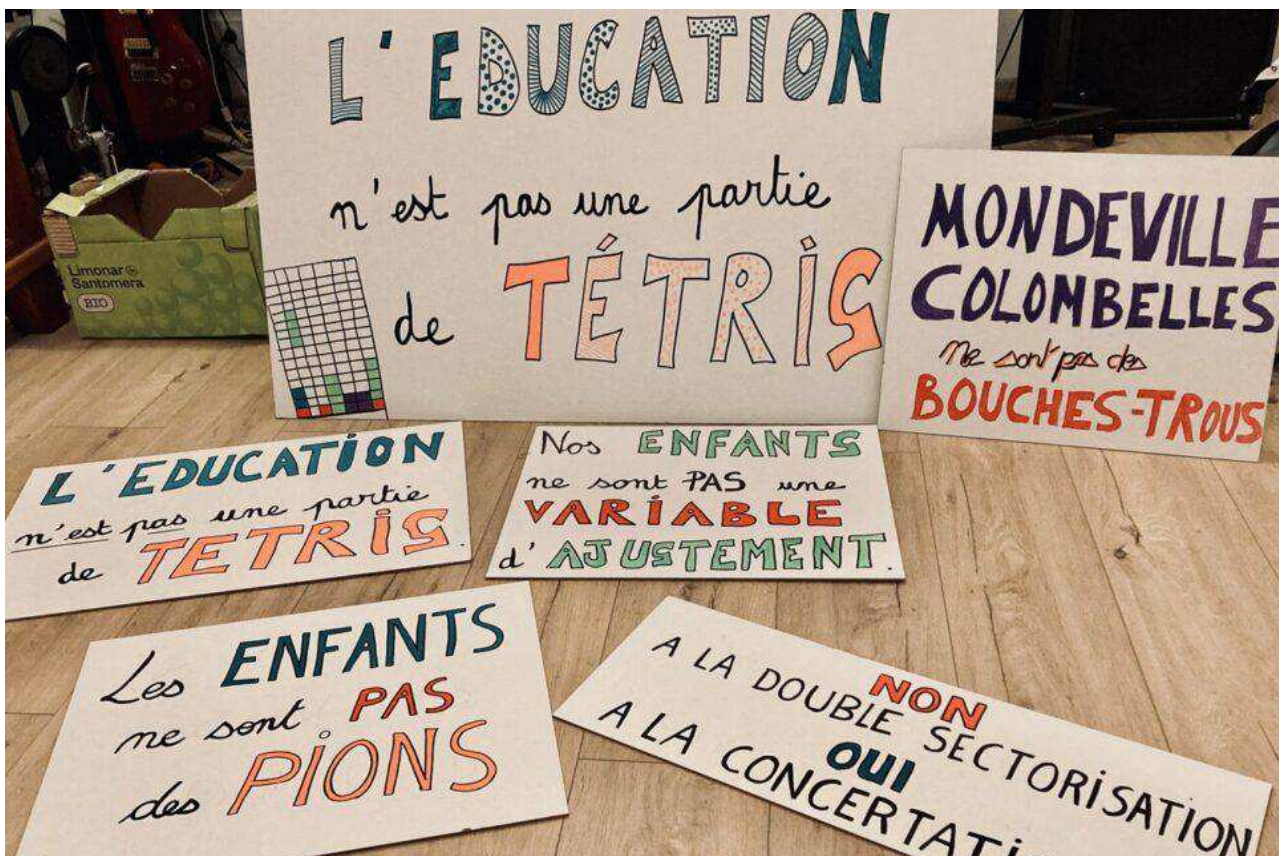 L'EDUCATION
n'est pas une partie
de TÉTRIS
MONDEVILLE
COLOMBELLES
ne sont pas des
BOUCHES-TROUS
Limonar
Santomera
BIO
L'EDUCATION
n'est pas une partie
de TETRIS.
Nos ENFANTS
ne sont PAS une
VARIABLE
d'AJUSTEMENT.
Les ENFANTS
ne sont PAS
des PIONS
NON
A LA DOUBLE SECTORISATION
OUI
A LA CONCERTATI